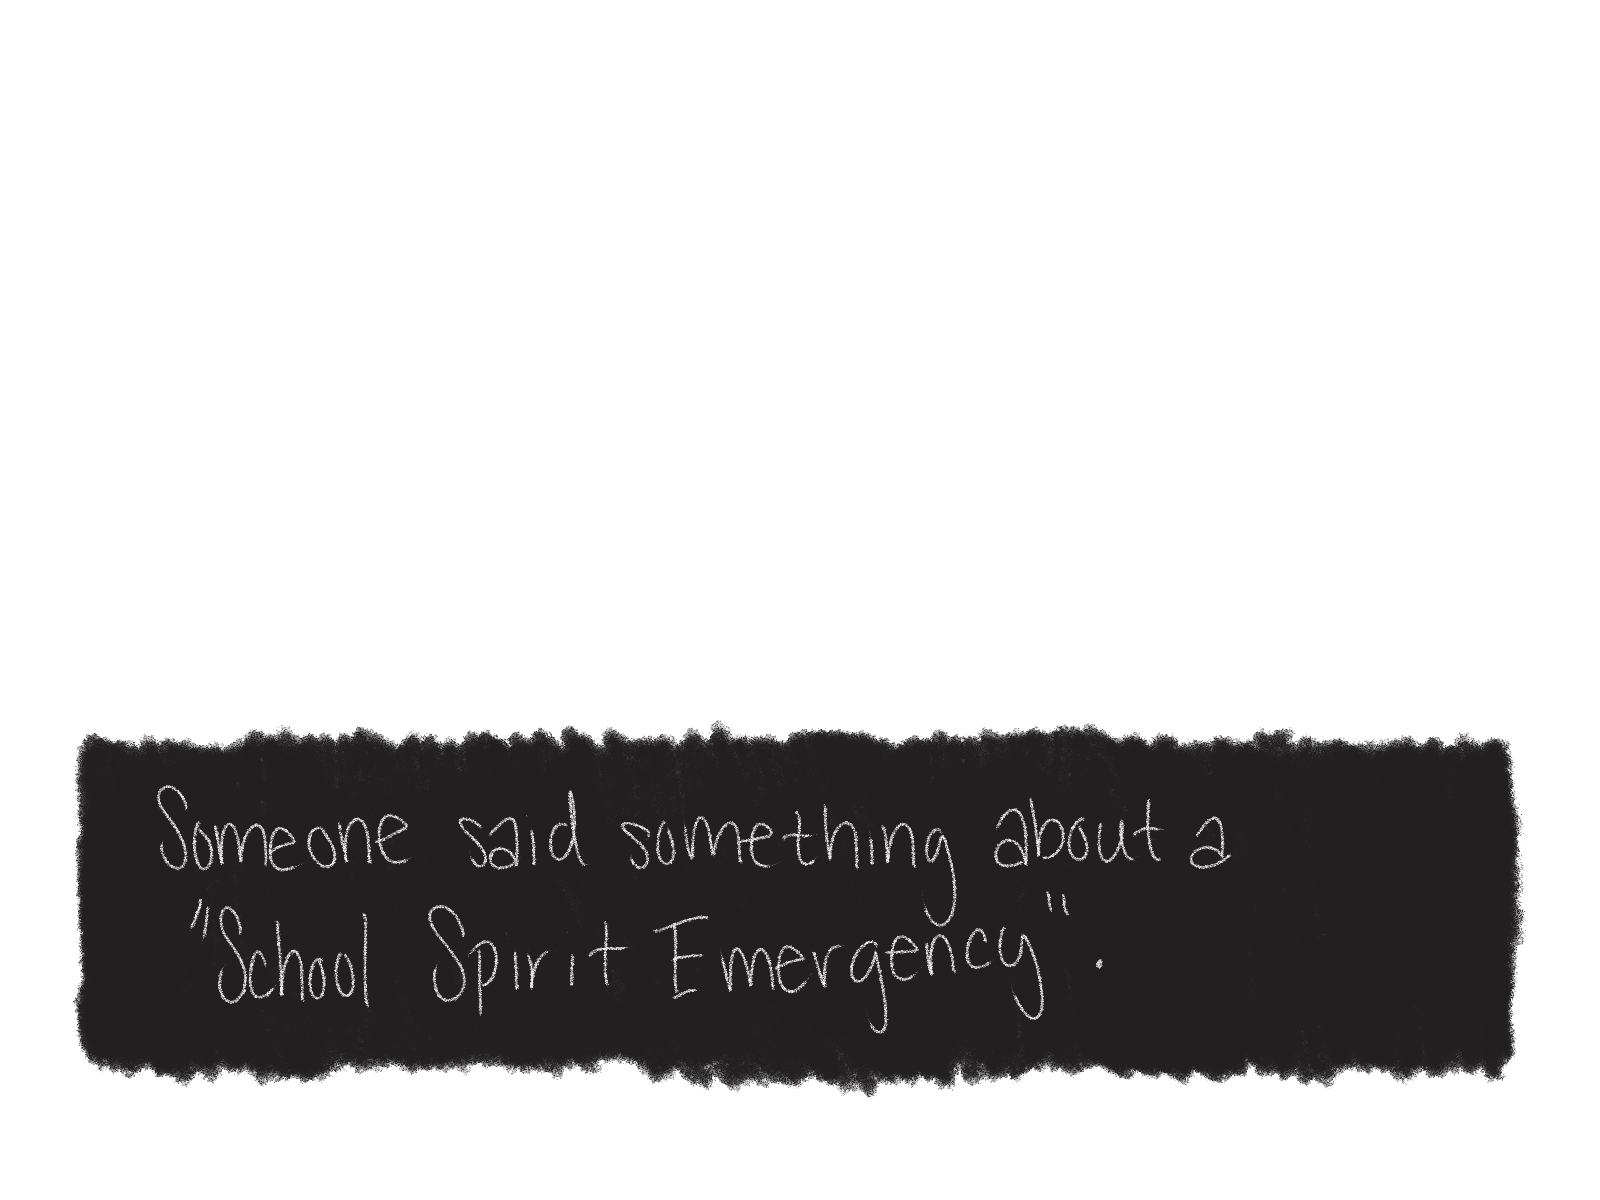 Someone said something about a
"School Spirit Emergency".